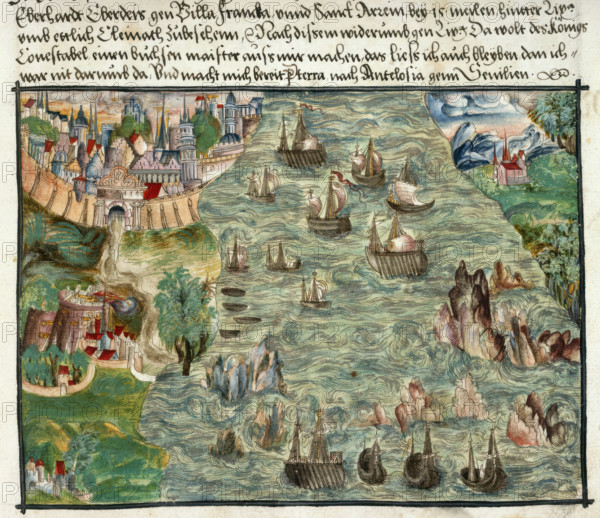 Eberharde Eberders gen Villa Francka, unnd Sanct Arzem, bey 15 meilen hinnter Lix=
umb ettlich Cleinatt zubeschein. Nach disem widerumb gen Lix. Da wolt des Königs
Conestabel einen büchsen maister auss mir machen, das liess ich auch bleyben dan ich=
war nit darumb da. Und macht mich bereit P terra nach Antelosia genn Sevilien.